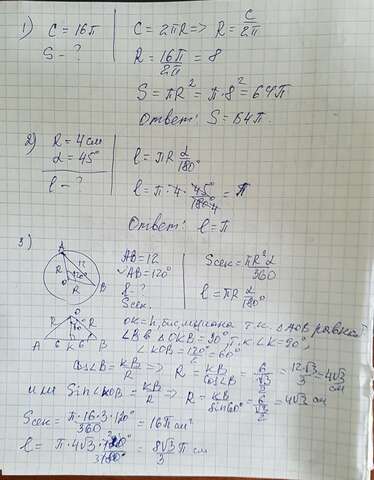 1) C = 16π
S - ?
C = 2πR => R = C/2π
R = 16π/2π = 8
S = πR² = π·8² = 64π
Ответ: S = 64π.
2) R = 4см
α = 45°
l - ?
l = πR α/180°
l = π·4·45°/180° = π
Ответ: l = π
3)
A
R 12
120°
O
R
B
AB = 12
◡AB = 120°
l - ?
Sсек.
Sсек = πR²α/360
l = πR α/180°
O
R R
A 6 K 6 B
OK = h, биссектриса т.к. ΔAOB равноб
В ΔOKB = 30°, т.к. ∠K = 90°,
∠KOB = 120°/2 = 60°
cos∠B = KB/R => R = KB/cos∠B = 6/(√3/2) = 12√3/3 = 4√3 см
или Sin∠KOB = KB/R => R = KB/sin60° = 6/(√3/2) = 4√3 см
Sсек = π·16·3·120°/360 = 16π см²
l = π·4√3·120°/180° = 8√3/3 π см